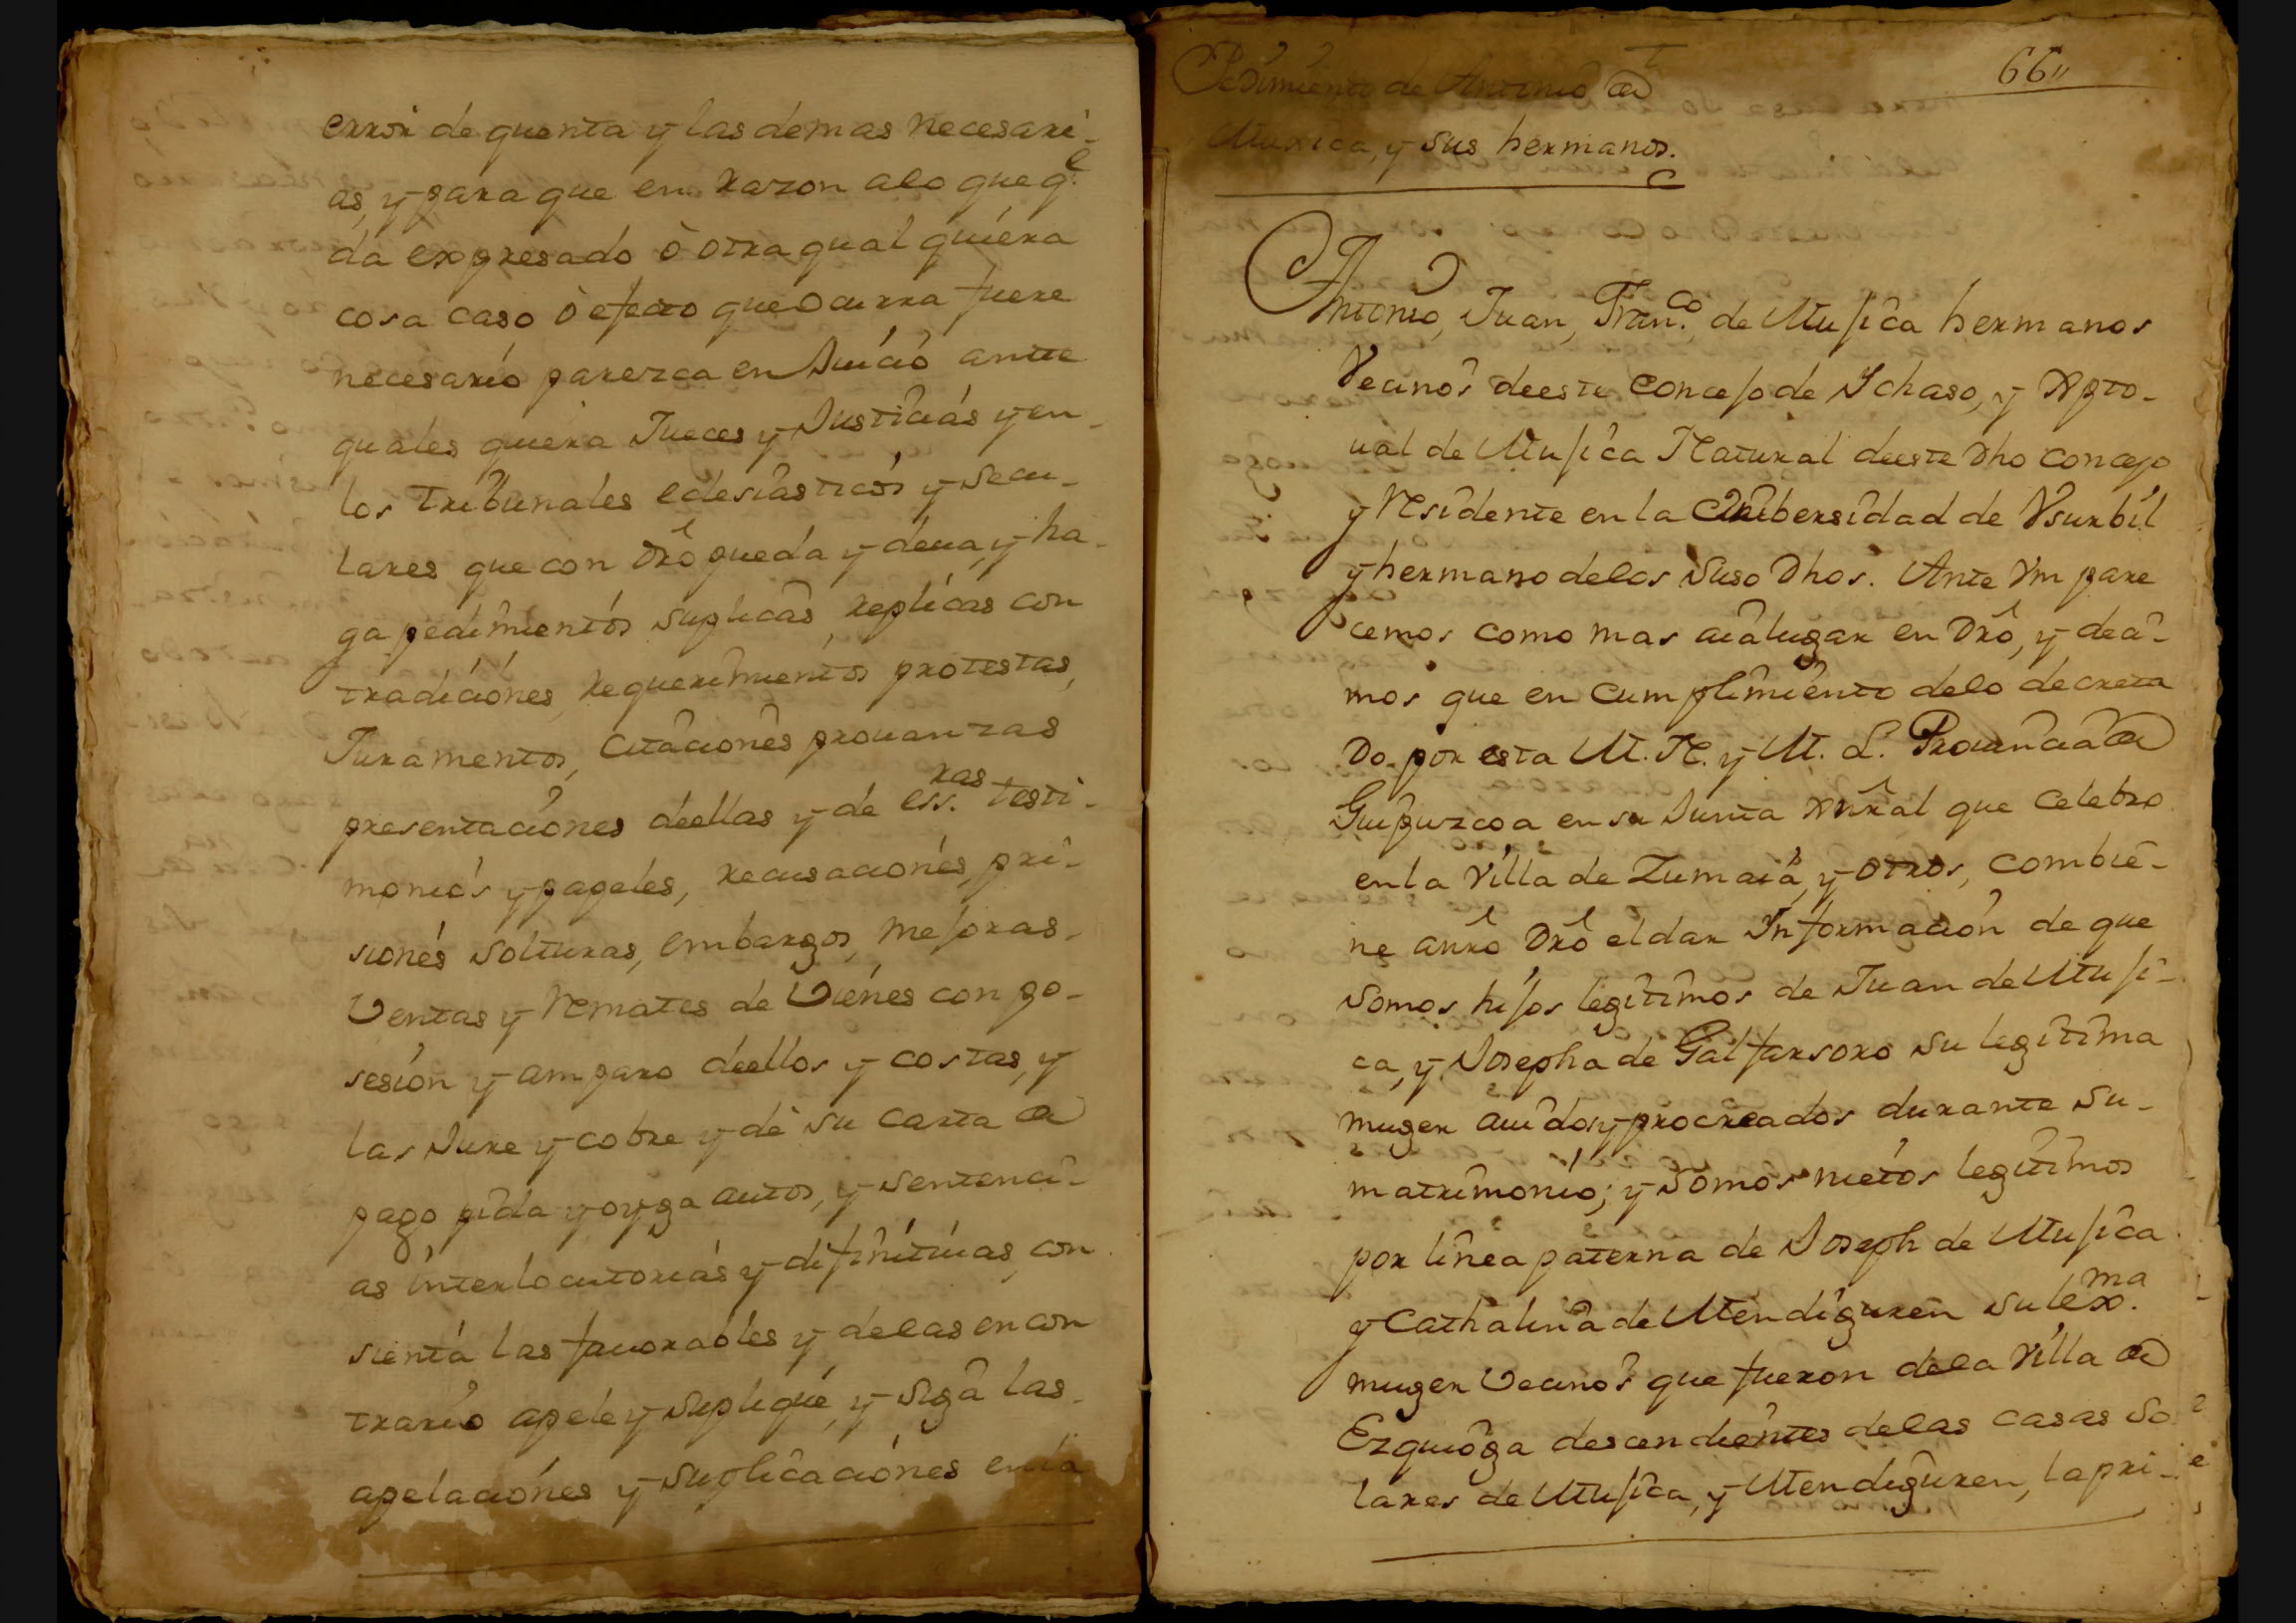 error de quenta y las demas necesari-
as, y para que en razon a lo que q.e
da expresado ò otra qual quiera
cosa caso ò efecto que ocurra fuere
necesario parezca en Juicio antte
quales quiera Jueces y Justicias y en-
los tribunales eclesiasticos y secu-
lares que con dro pueda y deua, y ha-
ga pedimientos suplicas, replicas con
tradiciones, requerimientos protestas,
Juramentos, Citaciones prouanzas
presentaciones deellas y de ess.ras testi-
monios y papeles, recusaciones, pri-
siones solturas, embargos, mejoras-
Ventas y Remates de Vienes con po-
sesion y amparo deellos y costas, y
las Jure y cobre y dè su carta de
pago pida y oyga autos, y sentenci-
as interlocutorias y difinitiuas, con
sienta las fauorables y delas en con
trario apele y suplique, y siga las-
apelaciones y suplicaciones en la
Pedimiento de Antonio de
Muxica, y sus hermanos.
66
Antonio, Juan, Fran.co de Mujica hermanos
Vecinos deeste Concejo de Ychaso, y Xpto-
ual de Mujica Natural deeste dho concejo
y Residente en la Unibersidad de Vsurbil
y hermano delos suso dhos. Ante Vm pare
cemos como mas aia lugar en dro, y deci-
mos que en cumplimiento delo decreta
do por esta M. N. y M. L. Prouincia de
Guipuzcoa en su Junta gnral que celebro
en la Villa de Zumaia, y otros, combie-
ne anro dro el dar Informacion de que
somos hijos legitimos de Juan de Muji-
ca, y Josepha de Galfarsoro su legitima
muger auidos y procreados durante su-
matrimonio; y somos nietos legitimos
por linea paterna de Joseph de Mujica
y Cathalina de Mendiguren su lex.ma
muger Vecinos que fueron dela Villa de
Ezquioga descendientes delas casas So
lares de Mujica, y Mendiguren, la pri-